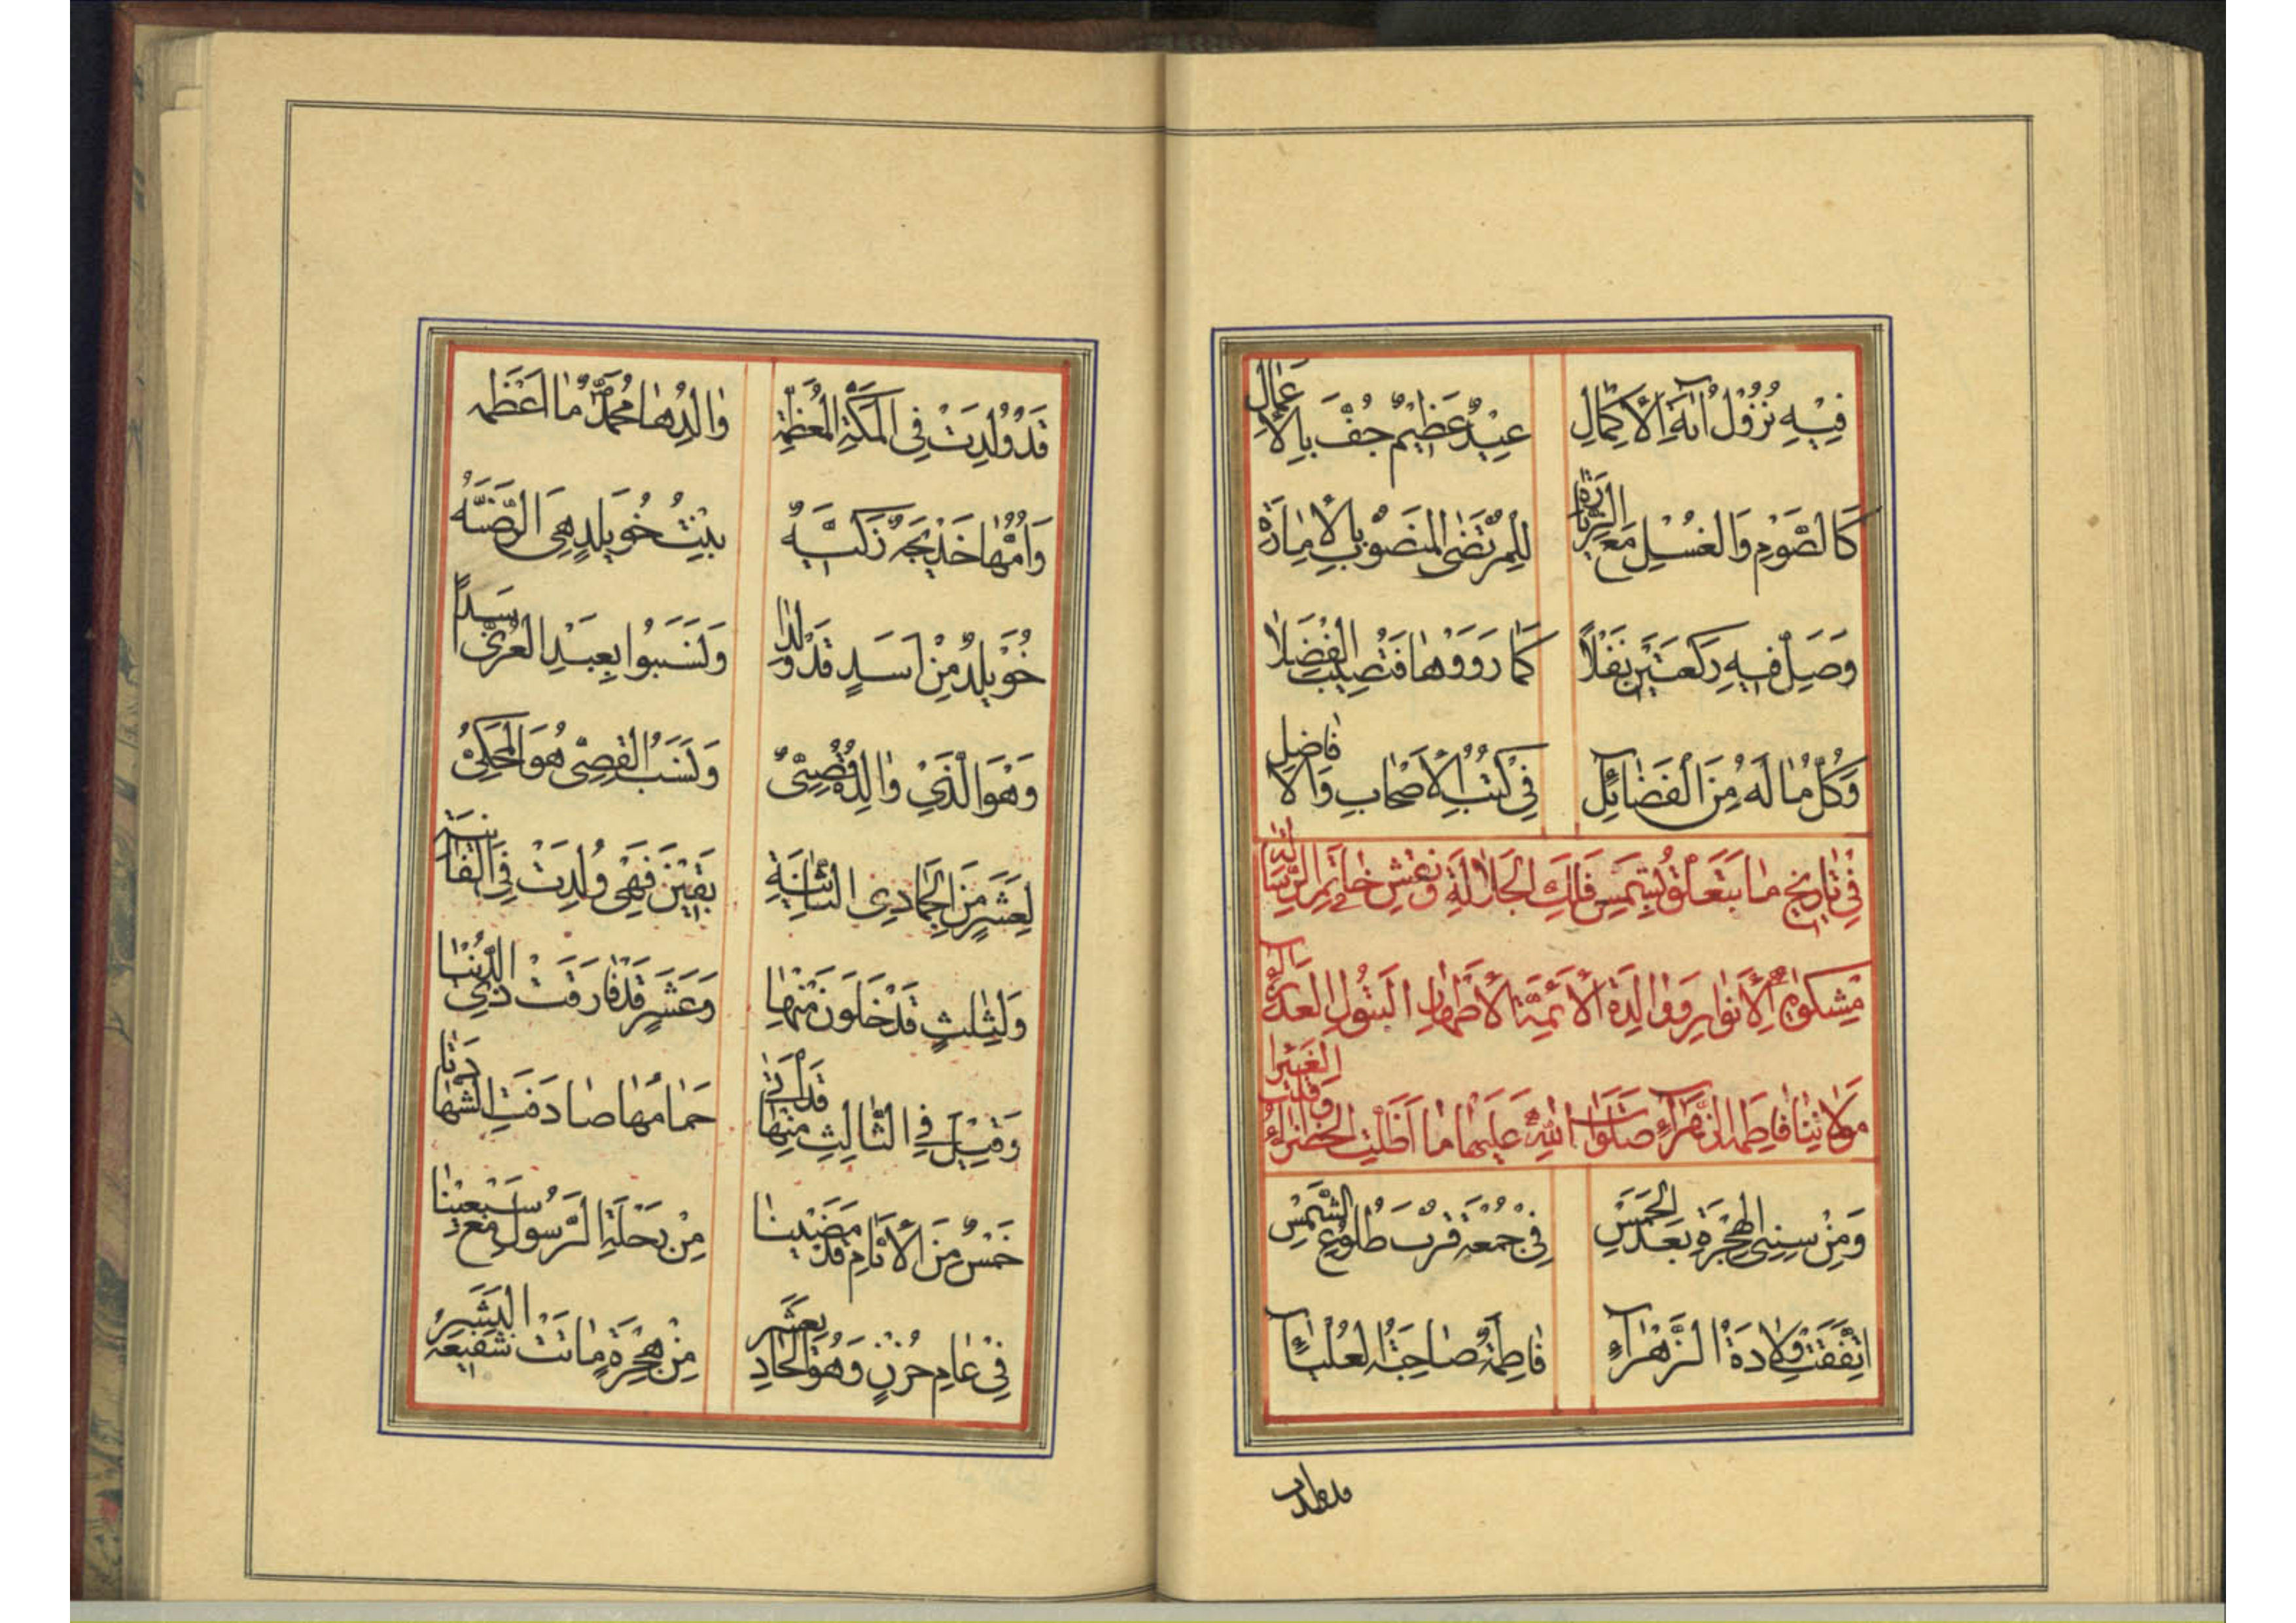 فِيهِ نُزُولُ اٰيَةِ الْاِكْمَالِ عِيدٌ عَظِيمٌ حُفَّ بِالْاَعْمَالِ
كَالصَّوْمِ وَالْغُسْلِ مَعَ الزِّيَارَةِ لِلْمُرْتَضَى الْمَنْصُوبِ بِالْاِمَارَةِ
وَصَلِّ فِيهِ رَكْعَتَيْنِ نَفْلًا كَمَا رَوَوْهَا فَتُصِيبَ الْفَضْلَا
وَكُلُّ مَا لَهُ مِنَ الْفَضَائِلِ فِي كُتُبِ الْاَصْحَابِ وَالْاَفَاضِلِ
فِي تَارِيخِ مَا يَتَعَلَّقُ بِشَمْسِ فَلَكِ الْجَلَالَةِ وَ خَاتَمِ الرِّسَالَةِ
مِشْكٰوةِ الْاَنْوَارِ وَوَالِدَةِ الْاَئِمَّةِ الْاَطْهَارِ الْبَتُولِ الْعَذْرَاءِ
مَوْلَاتِنَا فَاطِمَةَ الزَّهْرَاءِ صَلَوَاتُ اللّٰهِ عَلَيْهَا مَا اَظَلَّتِ الْخَضْرَاءُ وَ الْغَبْرَا
وَمِنْ سِنِي الْهِجْرَةِ بَعْدَ الْخَمْسِ فِي جُمْعَةٍ قُرْبَ طُلُوعِ الشَّمْسِ
اتَّفَقَتْ وِلَادَةُ الزَّهْرَاءِ فَاطِمَةٌ صَاحِبَةُ الْعُلْيَاءِ
قد ولدت
قَدْ وُلِدَتْ فِي الْمَكَّةِ الْمُعَظَّمَةِ وَالِدُهَا مُحَمَّدٌ مَا اَعْظَمَه
وَاُمُّهَا خَدِيجَةٌ زَكِيَّةٌ بِنْتُ خُوَيْلِدٍ هِيَ الرَّضِيَّةُ
خُوَيْلِدٌ مِنْ اَسَدٍ قَدْ وُلِدَا وَنَسَبُوا بِعَبْدِ الْعُزَّى
وَهُوَ الَّذِي وَالِدُهُ قُصَيٌّ وَنَسَبُ الْقُصَيِّ هُوَ الْمَحْكِيُّ
لِعَشْرٍ مِنَ الْجُمَادِي الثَّانِيَةِ بَقِينَ فَهْيَ وُلِدَتْ فِي
وَلِثَلٰثٍ قَدْ خَلَوْنَ مِنْهَا وَعَشْرٍ قَدْ فَارَقَتْ ذِي الدُّنْيَا
وَقِيلَ فِي الثَّالِثِ مِنْهَا قَدْ اَتٰى حِمَامُهَا صَادَفَتِ
خَمْسٌ مِنَ الْاَيَّامِ قَدْ مَضَيْنَا مِنْ رَحْلَةِ الرَّسُولِ مَعْ سَبْعِينَا
فِي عَامِ حُزْنٍ وَهُوَ الْحَادِي عَشَر مِنْ هِجْرَةٍ مَاتَتْ شَفِيعَةُ الْبَشَر